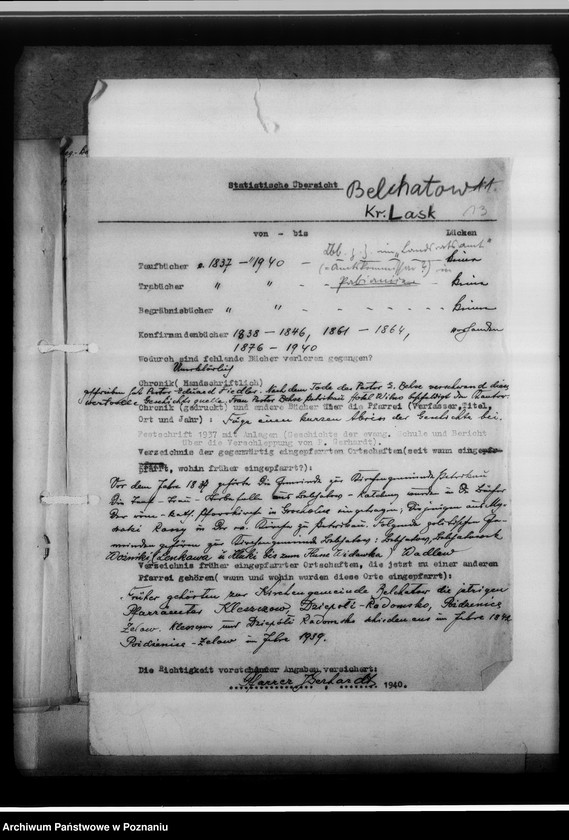 Statistische Übersicht Belchatow 11.
Kr. Lask 13
von - bis Lücken
Zbl. z. Z. im "Landratsamt"
Taufbücher v. 1837 - 1940 - (Amtskommissar?) in keine
Traubücher " " - Pabianice - keine
Begräbnisbücher " " - keine
Konfirmandenbücher 1838 - 1846, 1861 - 1864, vorhanden
1876 - 1940
Wodurch sind fehlende Bücher verloren gegangen?
Unerklärlich
Chronik (Handschriftlich)
geschrieben hat Pastor Eduard Fiedler. Nach dem Tode des Pastor
wertvolle Geschichtsquelle. Frau Pastor Petrikau
Chronik (gedruckt) und andere Bücher über die Pfarrei (Verfasser, Titel,
Ort und Jahr) : Füge einen kurzen Abriss der Geschichte bei.
Festschrift 1937 mit Anlagen (Geschichte der evang. Schule und Bericht
über die Verschleppung von P. Gerhardt).
Verzeichnis der gegenwärtig eingepfarrten Ortschaften(seit wann einge-
pfarrt, wohin früher eingepfarrt?):
Vor dem Jahre 1837 gehörte die Gemeinde zur Kirchengemeinde Petrikau
Die Tauf-Trau-Sterbefälle aus Belchatow wurden in die Bücher
der röm-kath. Pfarrkirche in Grocholice eingetragen, diejenigen aus
in der ev. Kirche zu Petrikau. Folgende politische Ge-
meinden gehören zur Kirchengemeinde Belchatow: Belchatow, Belchatowek
Wozniki, Lenkawa u. Kluki bis zum Fluss Widawka, Wadlew
Verzeichnis früher eingepfarrter Ortschaften, die jetzt zu einer anderen
Pfarrei gehören( wann und wohin wurden diese Orte eingepfarrt):
Früher gehörten zur Kirchengemeinde Belchatow die jetzigen
Pfarrämter Kleszczow, Dziepólć-Radomsko, Pozdzenice
Zelow. Kleszczow und Dziepólć Radomsko schieden aus im Jahre
Pozdzenice-Zelow im Jahre 1939.
Die Richtigkeit vorstehender Angaben versichert:
Pfarrer Gerhardt 1940.
Archiwum Państwowe w Poznaniu